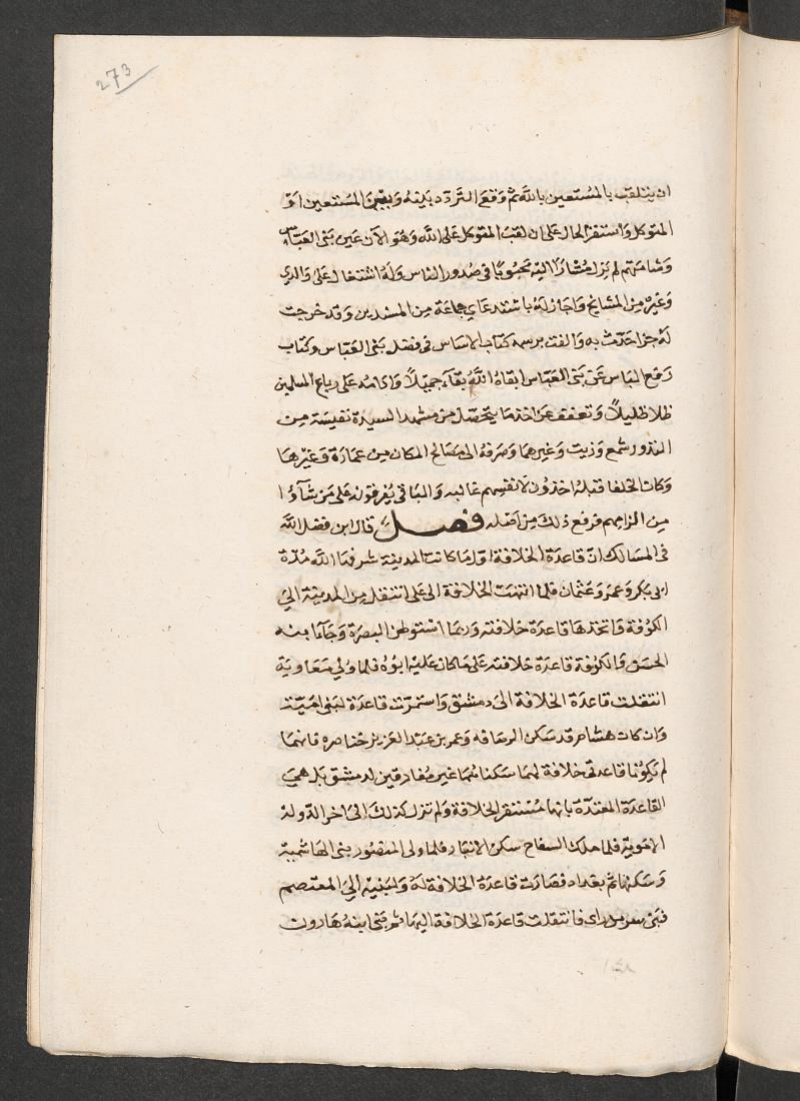 273
ان يتلقب بالمستعين بالله ثم وقع التردد بينه وبين المستعين او
المتوكل واستقر الحال على ان لقب المتوكل على الله وهو الآن عين بنى العباس
وشامتهم لم يزل مشارًا اليه محبوبًا فى صدور الناس وله اشتغال على والدي
وغيره من المشايخ واجاز له باستدعاي جماعة من المسندين وقد خرجت
له جزا حدث به والفت برسمه كتاب الاساس فى فضل بنى العباس وكتاب
رفع الباس عن بنى العباس ابقاه الله بقآء جميلًا وادامه على رباع المسلمين
ظلا ظليلًا وتعفف عن اخذ ما يتحصل من مشهد السيدة نفيسة من
النذور شمع وزيت وغيرهما وصرفه الى مصالح المكان من عمارة وغيرها
وكان الخلفا قبله ياخذون لانفسهم غالبه والباقى يفرقونه على من شآؤا
من الزامهم فرفع ذلك من اصله فصل قال ابن فضل الله
فى المسالك ان قاعدة الخلافة اول ما كانت المدينة شرفها الله مدة
ابى بكر وعمر وعثمان فلما انتهت الخلافة الى على انتقل من المدينة الي
الكوفة فاتخذها قاعدة خلافته وربما استوطن البصرة وجآءا بنه
الحسن والكوفة قاعدة خلافته على ما كان عليه ابوه فلما ولي معاوية
انتقلت قاعدة الخلافة الى دمشق واستمرت قاعدة لبنى امية
وان كان هشام قد سكن الرصافه وعمر بن عبد العزيز خناصره فانهما
لم يكونا قاعدتى خلافة لهما سكناهما غير مفارقين لدمشق بل هي
القاعدة المعتدة بانها مستقر الخلافة ولم تزل كذلك الى اخر الدولة
الاموية فلما ملك السفاح سكن الانبار فلما ولى المنصور بنى الهاشمية
وسكنها ثم بغداد فصارت قاعدة الخلافة له ولبنيه الي المعتصم
فبنى سر من راى فانتقلت قاعدة الخلافة اليها ثم بنى ابنه هارون